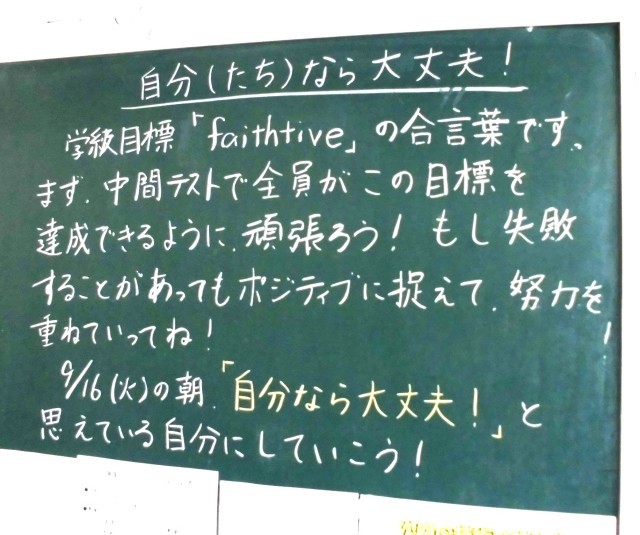 自分(たち)なら大丈夫！
学級目標「faithtive」の合言葉です。
まず、中間テストで全員がこの目標を
達成できるように、頑張ろう！もし失敗
することがあってもポジティブに捉えて、努力を
重ねていってね！
9/16(火)の朝、「自分なら大丈夫！」と
思えている自分にしていこう！